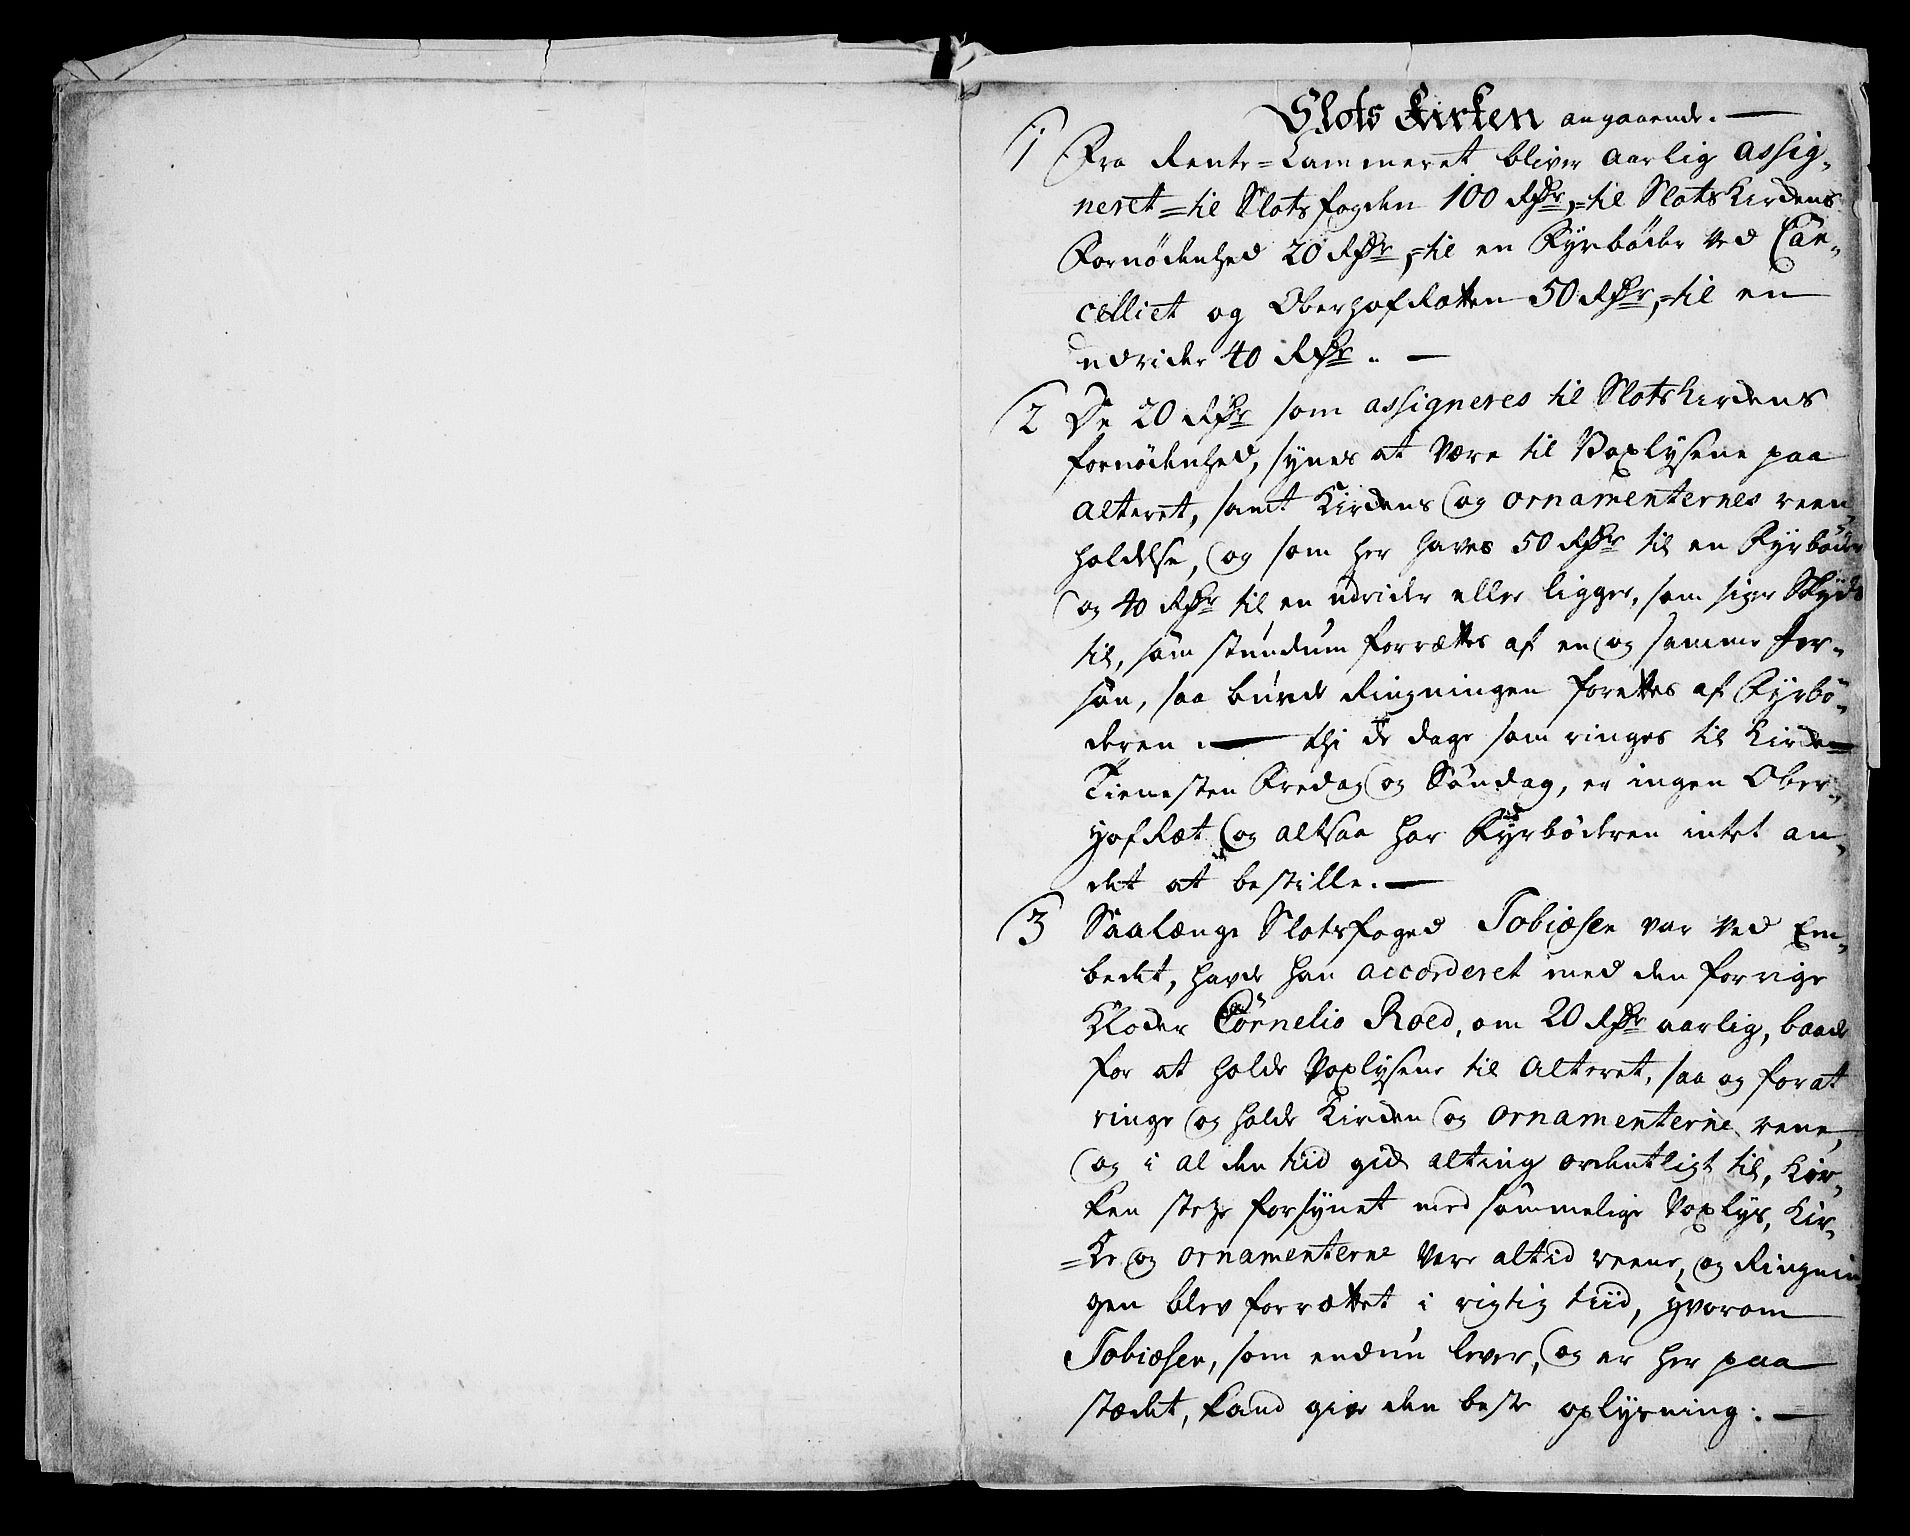 Slots Kirken angaaende. —
1 Fra Rente=Cammeret bliver aarlig assig-
neret =til Slotsfogden 100 Rdr, =til SlotsKirckens
Fornødenhed 20 Rdr, =til en Fyrbøder ved Can-
celliet og OberhofRetten 50 Rdr, =til en
udrider 40 Rdr. —
2 De 20 Rdr som assigneres til SlotsKirckens
fornødenhed, synes at være til Voxlysene paa
alteret, samt Kirckens og ornamenternes reen-
holdelse, og som her haves 50 Rdr til en Fyrbøder
og 40 Rdr til en udrider eller ligger, som siger Skyds
til, som stundum forrættes af en og samme Per-
son, saa burde Ringningen forettes af Fyrbø-
deren. — thi de dage som ringes til Kircke-
Tienesten Fredag og Søndag, er ingen Ober-
HofRet og altsaa har Fyrbøderen intet an-
det at bestille. —
3 Saalænge Slotsfoged Tobiæsen var ved Em-
bedet, havde han accorderet med den forrige
Kloder Cornelio Roed, om 20 Rdr aarlig, baade
for at holde Voxlysene til Alteret, saa og for at
ringe og holde Kircken og ornamenterne rene,
og i al den tiid gick alting ordentligt til, Kir-
ken stetze forsynet med sømmelige Voxlys, Kir-
=Ke og ornamenterne vare altid reene, og Ringnin
gen blev forrættet i rigtig tiid, hvorom
Tobiæsen, som endnu lever, og er her paa
stædet, kand give den beste oplysning. —